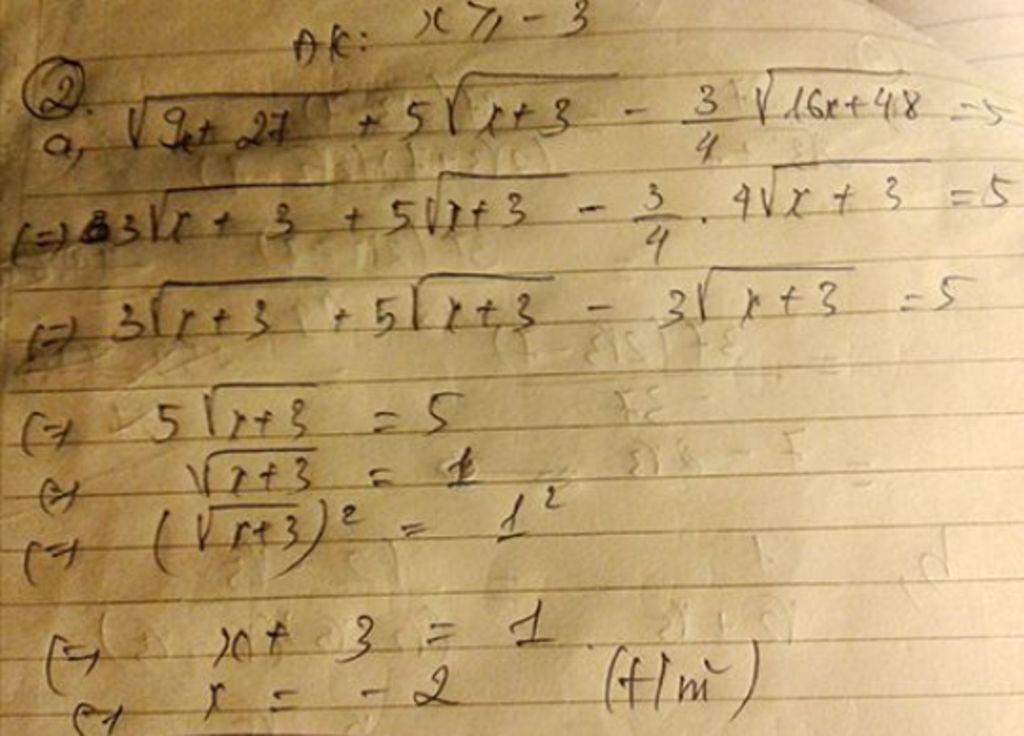 ĐK: x ≥ -3
②.
a, √(9x+27) + 5√(x+3) - 3/4 √(16x+48) = 5
(=) 3√(x+3) + 5√(x+3) - 3/4 . 4√(x+3) = 5
(=) 3√(x+3) + 5√(x+3) - 3√(x+3) = 5
(=) 5√(x+3) = 5
(=) √(x+3) = 1
(=) (√(x+3))² = 1²
(=) x + 3 = 1
(=) x = -2 (t/m)